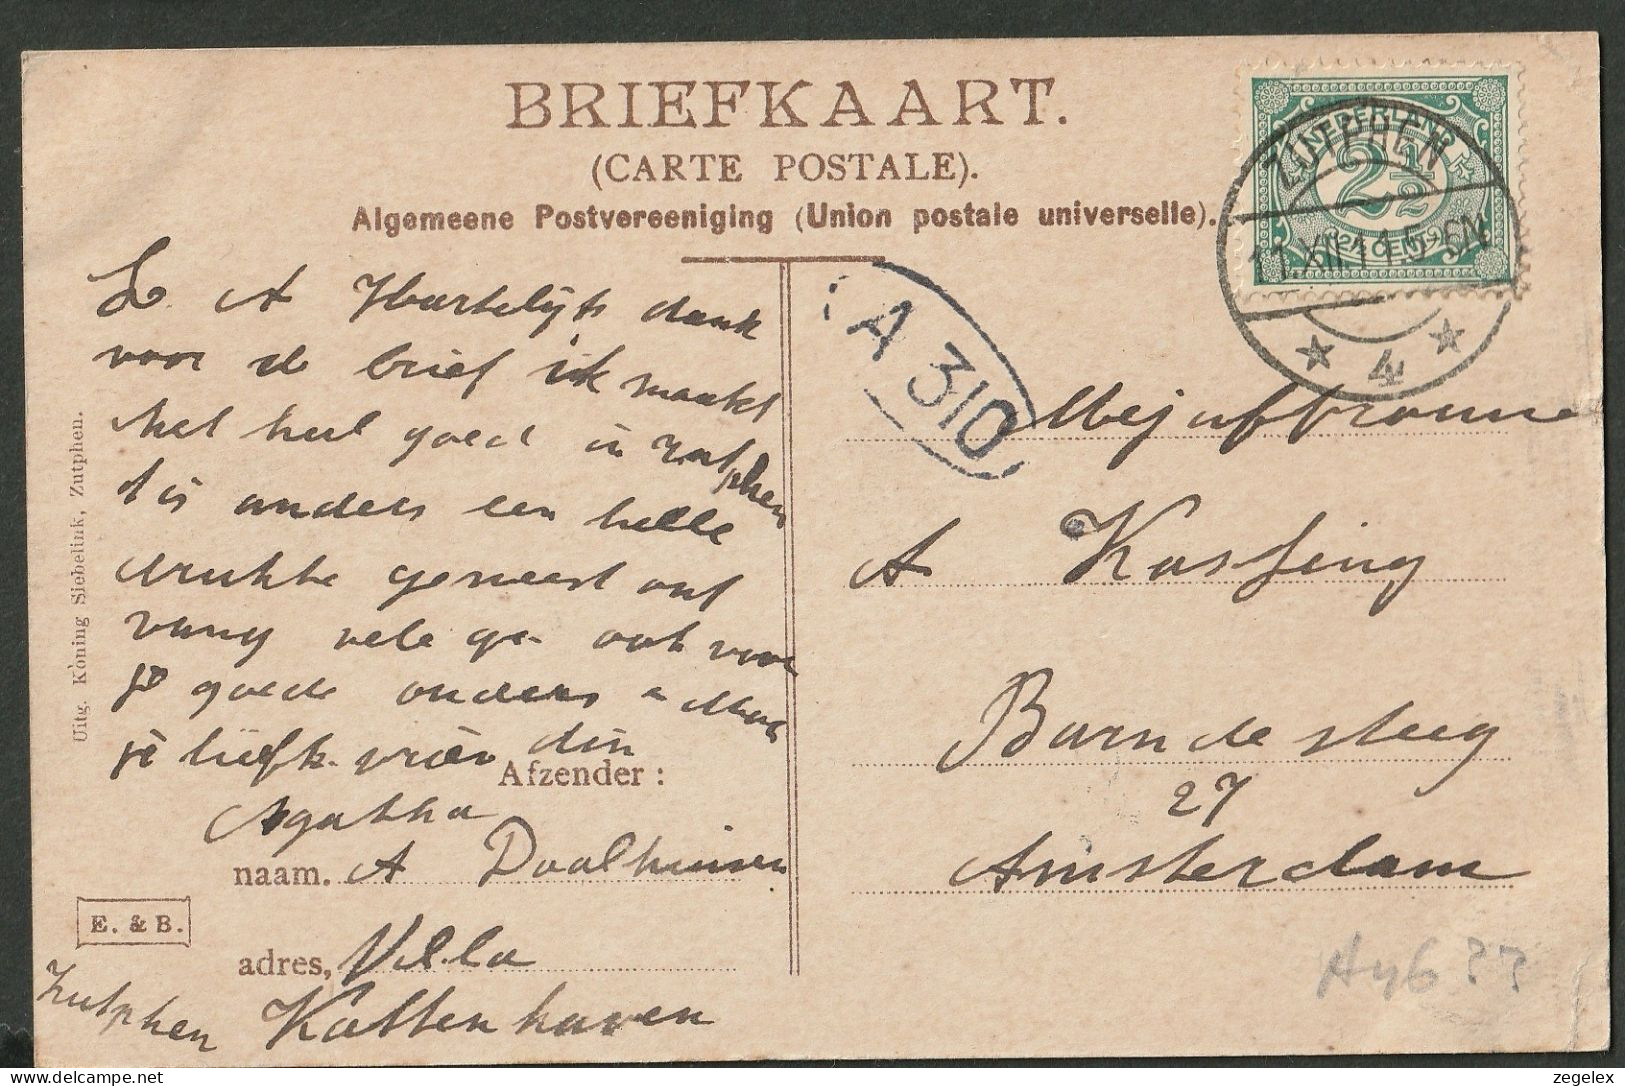 BRIEFKAART.
(CARTE POSTALE).
Algemeene Postvereeniging (Union postale universelle).
NEDERLAND
2½
2½ CENT
ZUTPHEN
11.XII.11.5-6N
4
A 310
L A Hartelijk dank
voor de brief ik maakt
het heel goed in Zutphen
t is anders een helle
drukte geweest ont
vang vele gr ook voor
je goede ouders
je liefh. vriendin
Agatha
Afzender:
naam. A Daalhuisen
adres, Villa
Kattenhaven
Zutphen
E. & B.
Uitg. Koning Siebelink, Zutphen.
Mejuffrouw
A Kassing
Barndesteeg
27
Amsterdam
zegelex